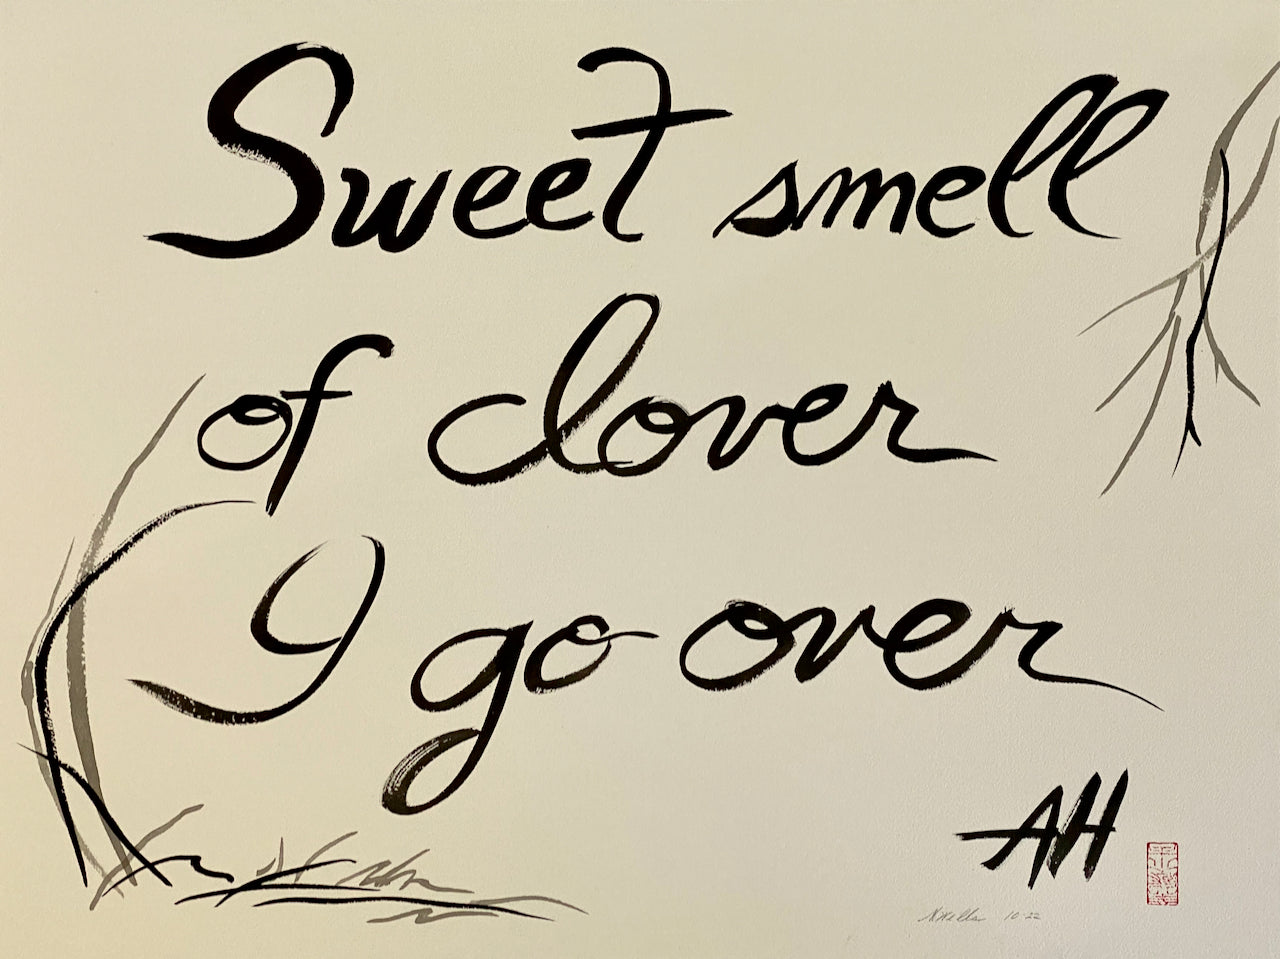 Sweet smell
of clover
I go over
AH
10-22